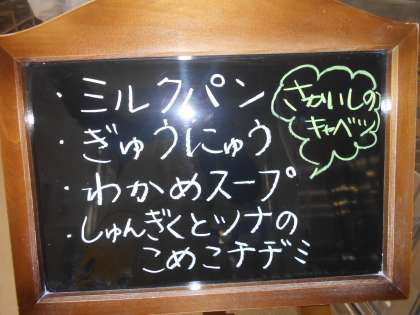 ・ミルクパン
・ぎゅうにゅう
・わかめスープ
・しゅんぎくとツナの
こめこチヂミ
さかいしの
キャベツ